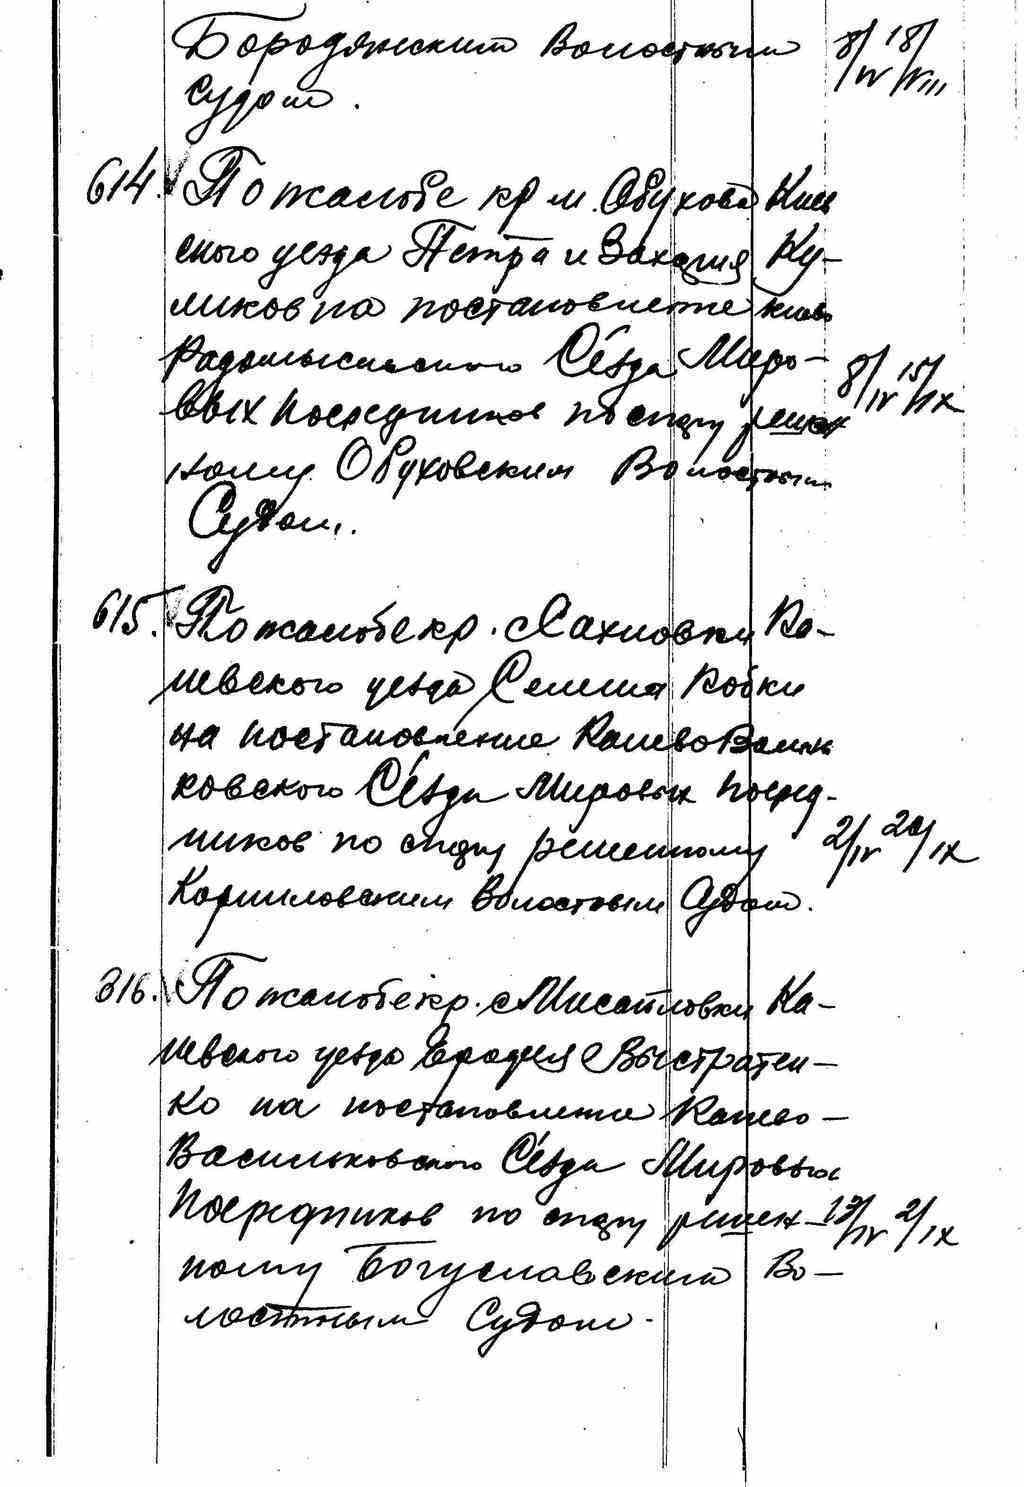 Бородянским Волостным 8/IV 18/VIII
Судом.
614. По жалобе кр м. Обухова Киев
ского уезда Петра и Захария Ку-
ликов на постановление Киево
Радомысльского Сезда Миро-
вых Посредников по спору решен 8/IV 15/IX
ному Обуховским Волостным
Судом.
615. По жалобе кр. с Сахновки Ка-
невского уезда Семена Кобки
на постановление Канево Василь
ковского Сезда Мировых Посред-
ников по спору решенному 2/IV 20/IX
Корниловским Волостным Судом.
316. По жалобе кр. с Мисайловки Ка-
невского уезда Ерофея Быстратен-
ко на постановление Канево-
Васильковского Сезда Мировых
Посредников по спору решен- 13/IV 2/IX
ному Богуславским Во-
лостным Судом.